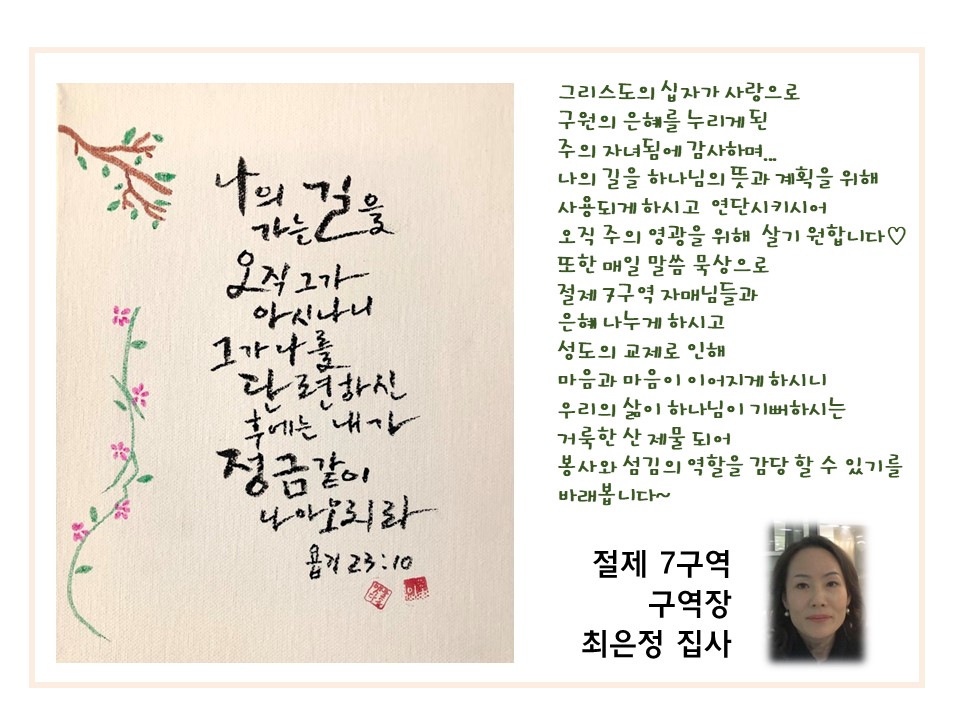 나의
가는 길을
오직 그가
아시나니
그가 나를
단련하신
후에는 내가
정금같이
나아오리라
욥기 23:10
그리스도의 십자가 사랑으로
구원의 은혜를 누리게 된
주의 자녀됨에 감사하며...
나의 길을 하나님의 뜻과 계획을 위해
사용되게 하시고 연단시키시어
오직 주의 영광을 위해 살기 원합니다♡
또한 매일 말씀 묵상으로
절제 7구역 자매님들과
은혜 나누게 하시고
성도의 교제로 인해
마음과 마음이 이어지게 하시니
우리의 삶이 하나님이 기뻐하시는
거룩한 산 제물 되어
봉사와 섬김의 역할을 감당 할 수 있기를
바래봅니다~
절제 7구역
구역장
최은정 집사